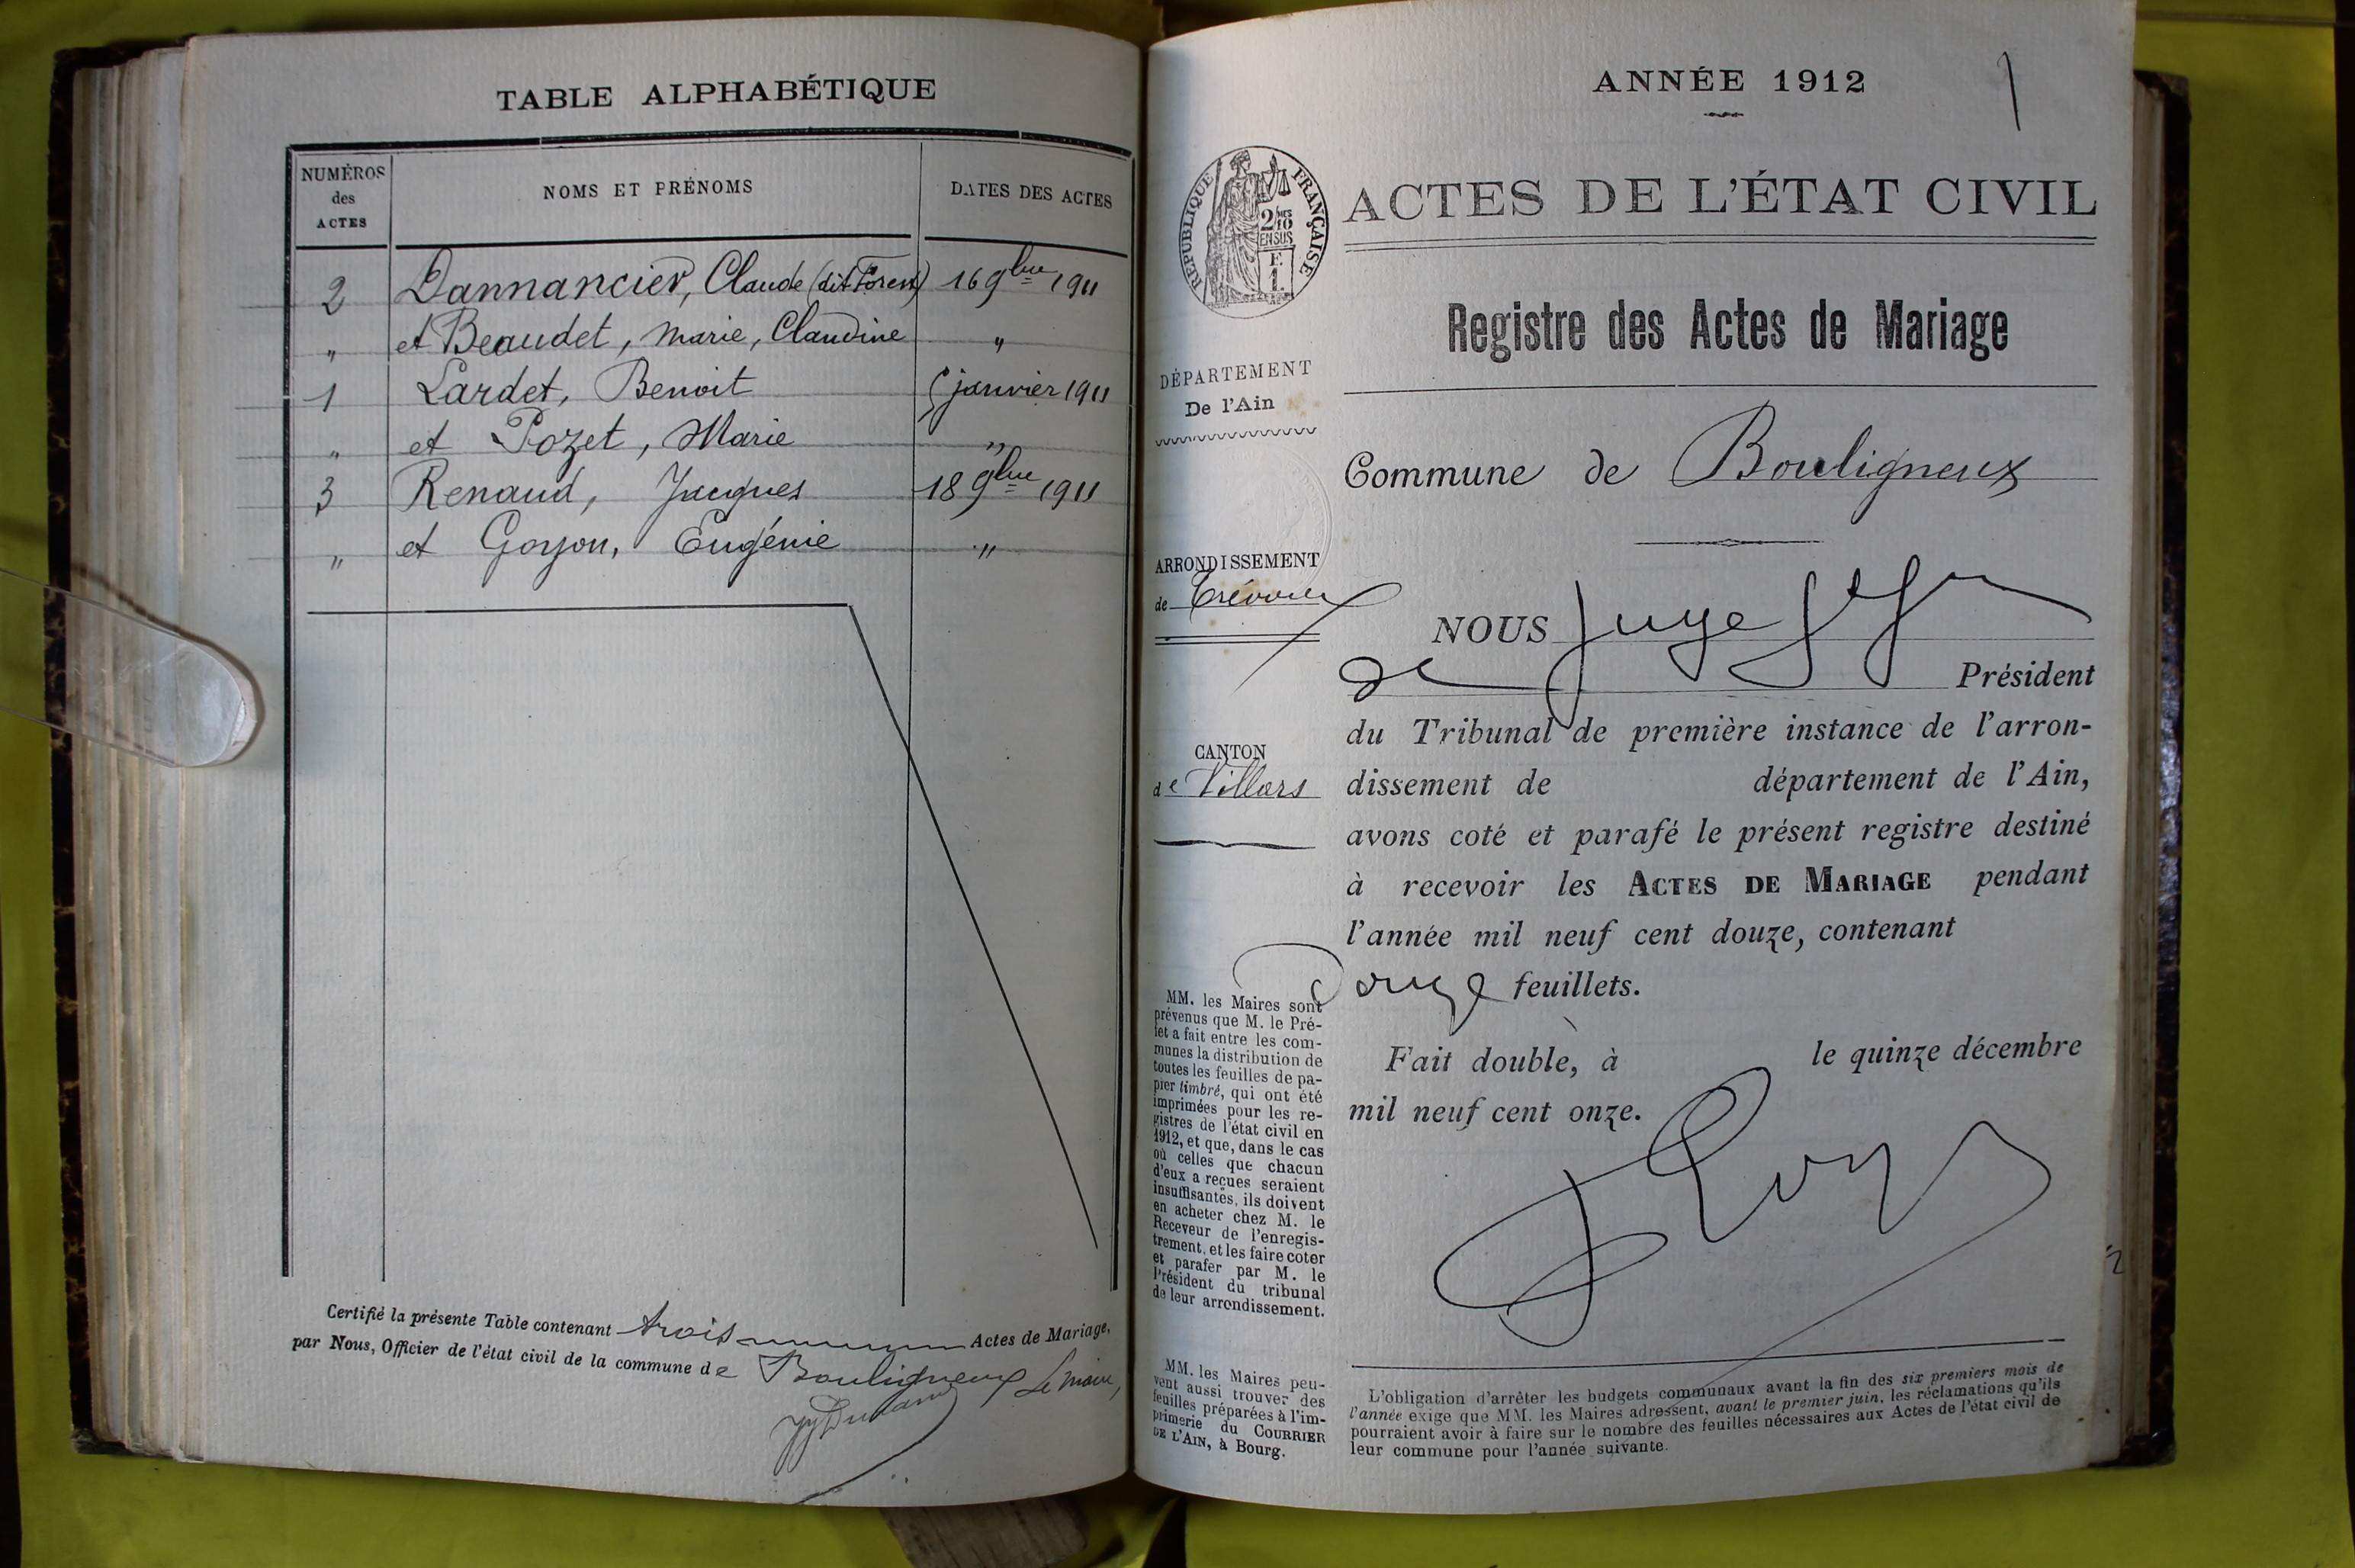 TABLE ALPHABÉTIQUE
NUMÉROS des ACTES
NOMS ET PRÉNOMS
DATES DES ACTES
2 Dannancier, Claude (dit Forest) 16 9bre 1911
" et Beaudet, Marie, Claudine "
1 Lardet, Benoit 5 janvier 1911
" et Pozet, Marie "
3 Renaud, Jacques 18 9bre 1911
" et Goyon, Eugénie "
Certifié la présente Table contenant trois Actes de Mariage,
par Nous, Officier de l'état civil de la commune de Bouligneux Le maire,
ANNÉE 1912
1
RÉPUBLIQUE FRANÇAISE
2/10 EN SUS
F. 1.
ACTES DE L'ÉTAT CIVIL
Registre des Actes de Mariage
DÉPARTEMENT
De l'Ain
Commune de Bouligneux
ARRONDISSEMENT
de Trévoux
CANTON
de Villars
NOUS Juge
de Président
du Tribunal de première instance de l'arron-
dissement de département de l'Ain,
avons coté et parafé le présent registre destiné
à recevoir les ACTES DE MARIAGE pendant
l'année mil neuf cent douze, contenant
Douze feuillets.
Fait double, à le quinze décembre
mil neuf cent onze.
MM. les Maires sont
prévenus que M. le Pré-
fet a fait entre les com-
munes la distribution de
toutes les feuilles de pa-
pier timbré, qui ont été
imprimées pour les re-
gistres de l'état civil en
1912, et que, dans le cas
où celles que chacun
d'eux a reçues seraient
insuffisantes, ils doivent
en acheter chez M. le
Receveur de l'enregis-
trement, et les faire coter
et parafer par M. le
Président du tribunal
de leur arrondissement.
MM. les Maires peu-
vent aussi trouver des
feuilles préparées à l'im-
primerie du COURRIER
DE L'AIN, à Bourg.
L'obligation d'arrêter les budgets communaux avant la fin des six premiers mois de
l'année exige que MM. les Maires adressent, avant le premier juin, les réclamations qu'ils
pourraient avoir à faire sur le nombre des feuilles nécessaires aux Actes de l'état civil de
leur commune pour l'année suivante.